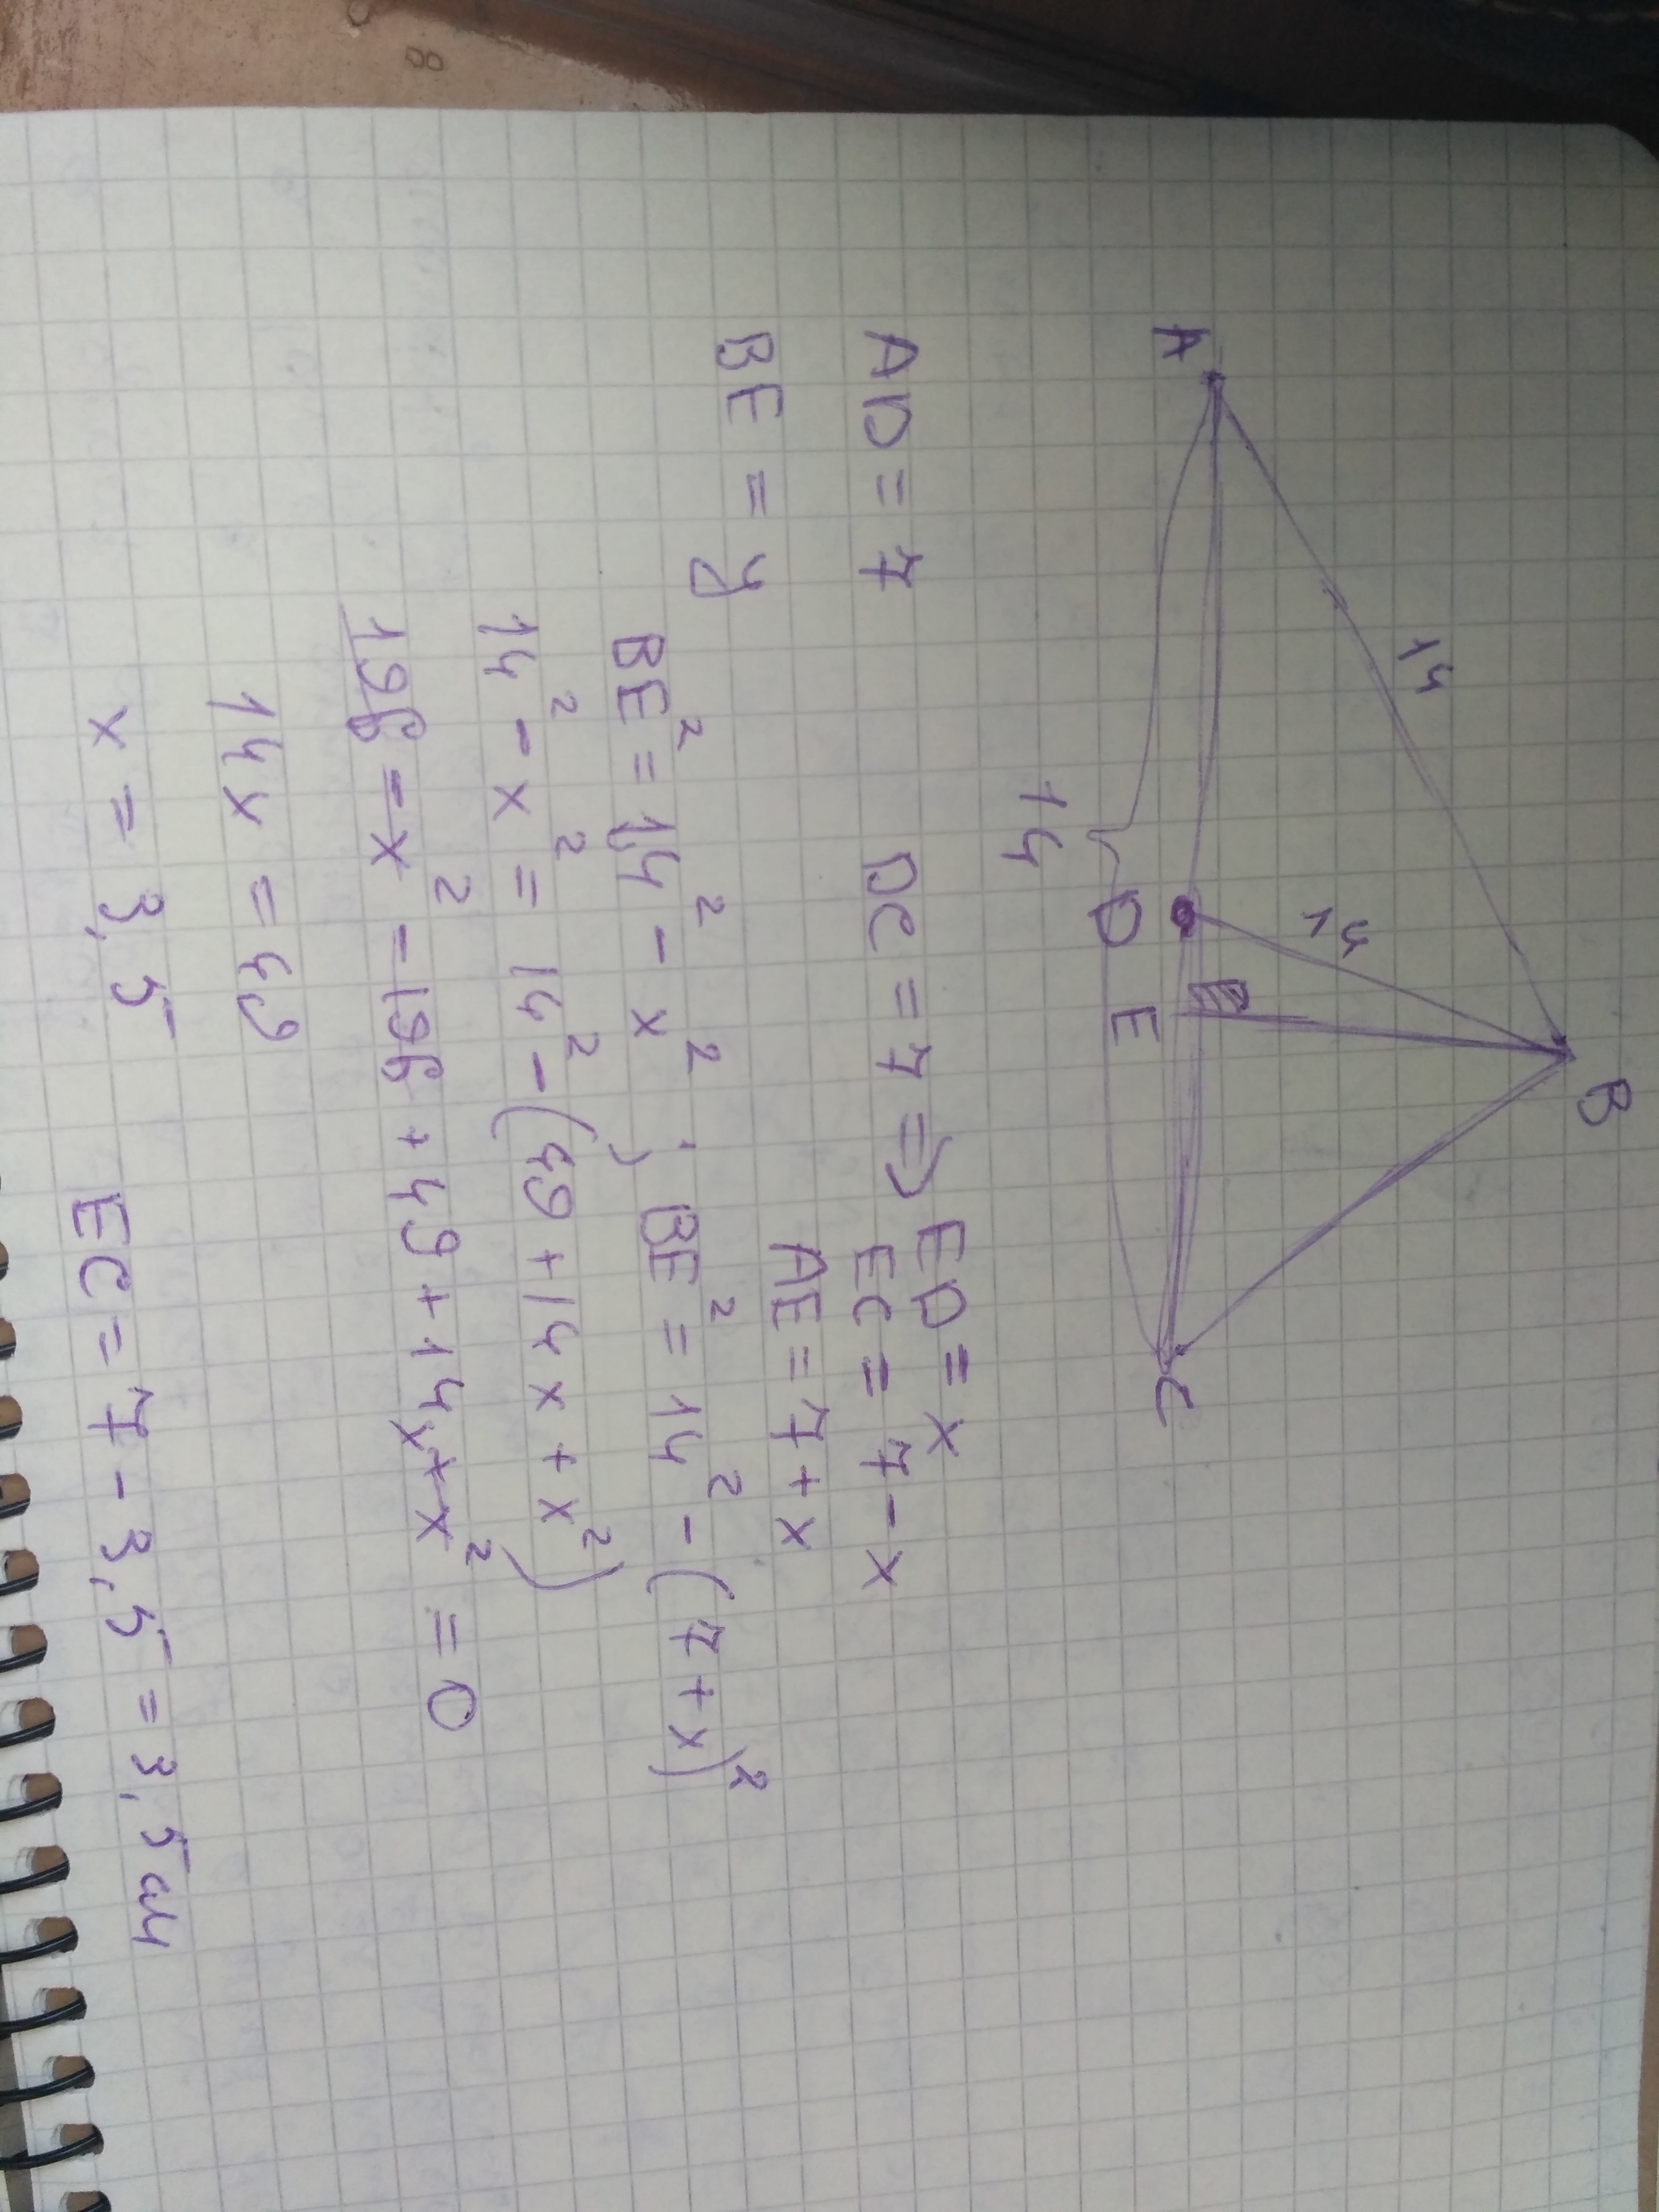 B
14
14
A
D
E
E
C
14
AD = 7
DC = 7 ⇒ ED = x
EC = 7 - x
AE = 7 + x
BE = y
BE² = 14² - x² ; BE² = 14² - (7 + x)²
14² - x² = 14² - (49 + 14x + x²)
196 - x² - 196 + 49 + 14x + x² = 0
14x = 49
x = 3,5
EC = 7 - 3,5 = 3,5